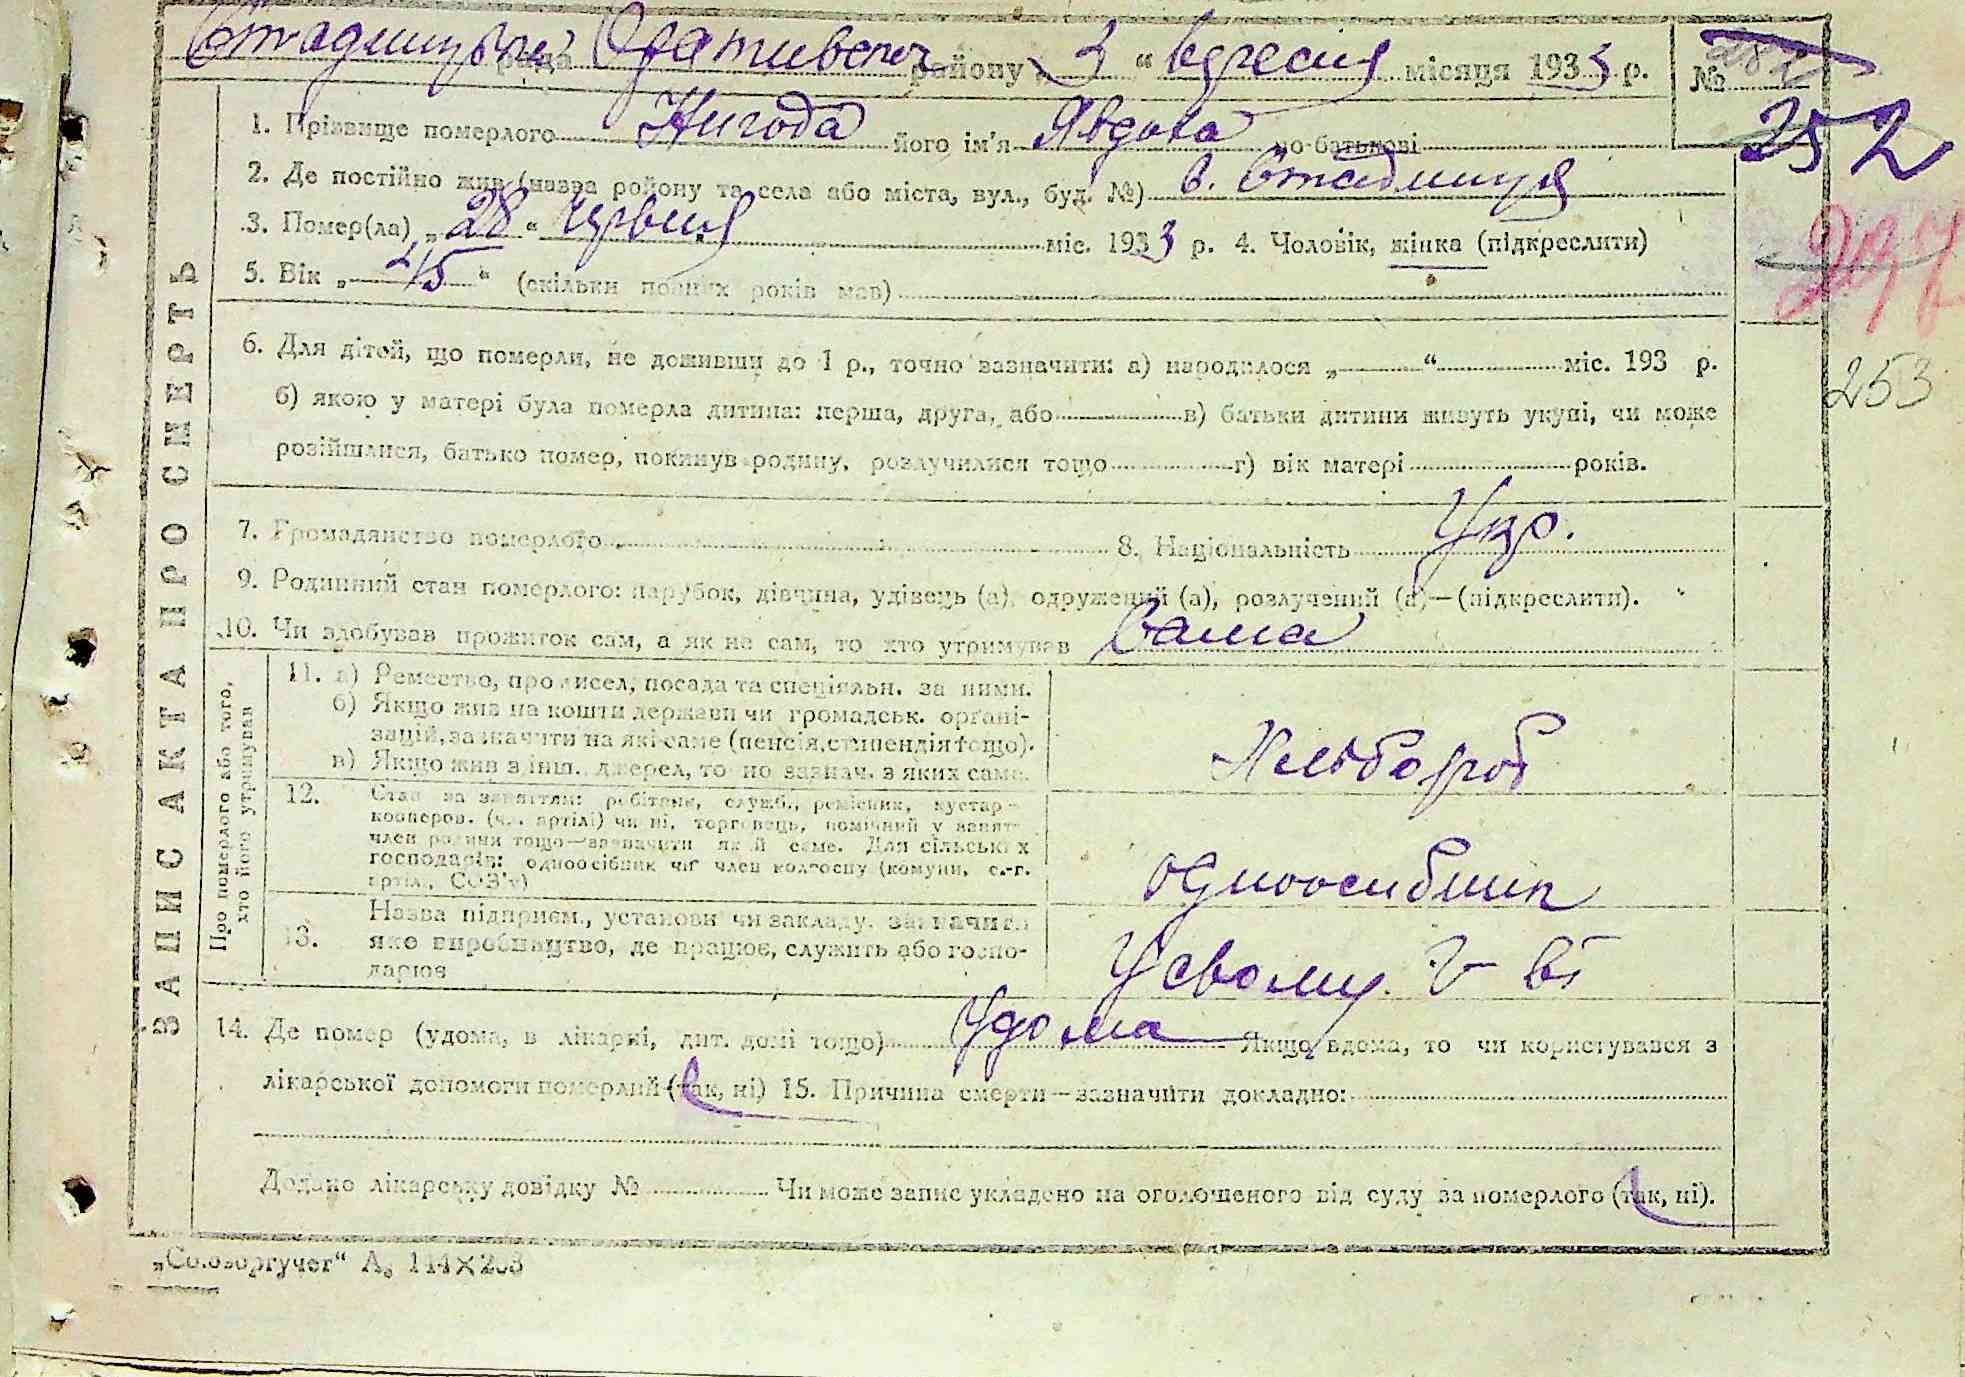 Стадницька рада Оратівського району „3“ вересня місяця 1933 р. №
252
1. Прізвище померлого Нигода його ім'я Явдоха по-батькові
2. Де постійно жив (назва району та села або міста, вул., буд. №) с. Стадниця
3. Помер(ла) „28“ червня міс. 1933 р. 4. Чоловік, жінка (підкреслити)
297
5. Вік „45“ (скільки повних років мав)
6. Для дітей, що померли, не доживши до 1 р., точно зазначити: а) народилося „ “ міс. 193 р.
253
б) якою у матері була померла дитина: перша, друга, або в) батьки дитини живуть укупі, чи може
розійшлися, батько помер, покинув родину, розлучилися тощо г) вік матері років.
7. Громадянство померлого 8. Національність Укр.
9. Родинний стан померлого: парубок, дівчина, удівець (а), одружений (а), розлучений (а)—(підкреслити).
10. Чи здобував прожиток сам, а як не сам, то хто утримував Сама
ЗАПИС АКТА ПРО СМЕРТЬ
Про померлого або того,
хто його утримував
11. а) Ремество, промисел, посада та спеціяльн. за ними.
б) Якщо жив на кошти держави чи громадськ. орґані-
зацій, зазначити на які-саме (пенсія, стипендія тощо).
в) Якщо жив з інш. джерел, то по зазнач. з яких саме.
Хлібороб
12. Стан за заняттям: робітник, службо., ремісник, кустар-
кооперов. (чл. артілі) чи ні, торговець, помічний у занят.
член родини тощо—зазначити який саме. Для сільських
господарів: одноосібник чи член колгоспу (комуни, с.-г.
артілі, СОЗ'у)
одноосибник
13. Назва підприєм., установи чи закладу, зазначити
яке виробництво, де працює, служить або госпо-
дарює
У свому г-ві
14. Де помер (удома, в лікарні, дит. домі тощо) Удома Якщо вдома, то чи користувався з
лікарської допомоги померлий (так, ні) 15. Причина смерти—зазначити докладно:
Додано лікарську довідку № Чи може запис укладено на оголошеного від суду за померлого (так, ні).
„Союзоргучет“ А₅ 144×203